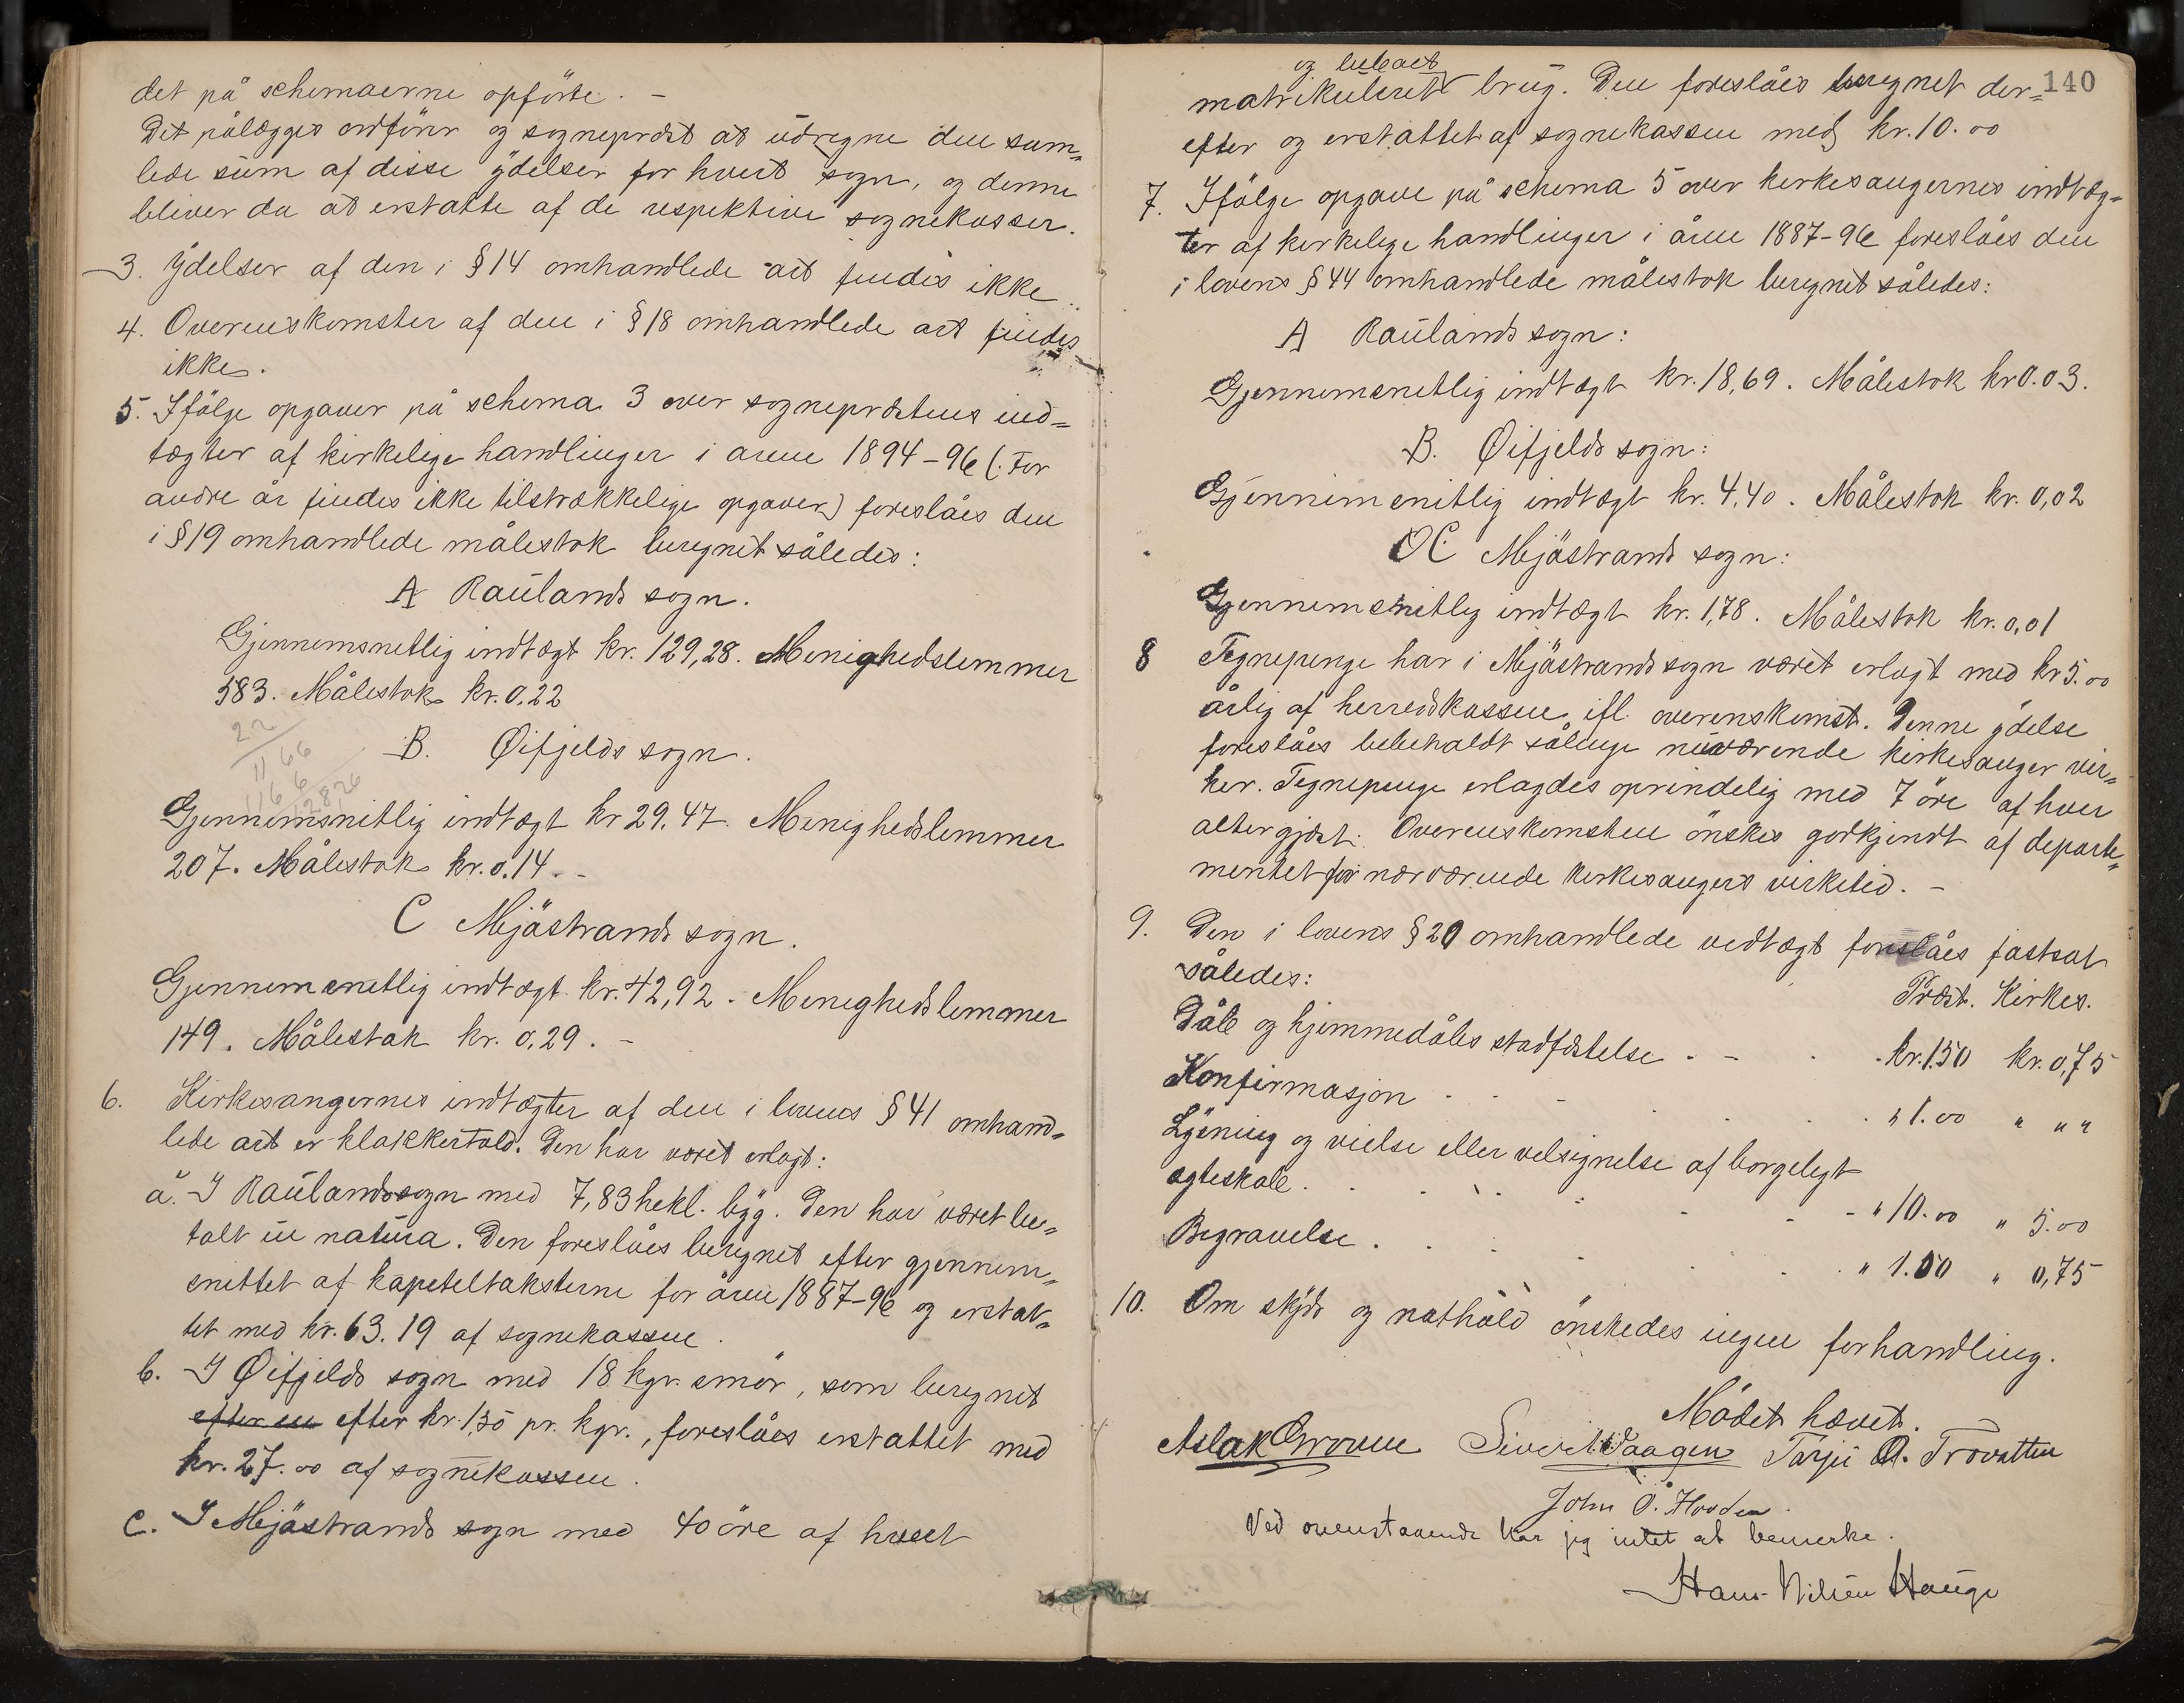 det på schemaerne opförte. –
Det pålægges ordförer og sogneprest at udregne den sam=
lede sum af disse ydelser for hvert sogn, og denne
bliver da at erstatte af de respektive sognekasser.
3. Ydelser af den i § 14 omhandlede art findes ikke.
4. Overenskomster af den i § 18 omhandlede art findes
ikke.
5. Ifölge opgaver på schema 3 over sogneprestens ind=
tægter af kirkelige handlinger i årene 1894-96 (: For
andre år findes ikke tilstrækkelige opgaver) foreslåes den
i § 19 omhandlede målestok beregnet således:
A Raulands sogn.
Gjennemsnetlig indtægt kr. 129,28. Menighedslemmer
583. Målestok kr. 0.22
22
1166
1166
12826
B. Øifjelds sogn.
Gjennemsnitlig indtægt kr 29.47. Menighedslemmer
207. Målestok kr. 0.14. –
C Mjöstrands sogn.
Gjennemsnetlig indtægt kr. 42,92. Menighedslemmer
149. Målestok kr. 0,29. –
6. Kirkesangernes indtægter af den i lovens § 41 omhand=
lede art er klokkertold. Den har været erlagt:
a. I Raulands sogn med 7,83 hekl. byg. Den har været be=
talt in natura. Den foreslåes beregnet efter gjennem=
snittet af kapiteltaksterne for årene 1887-96 og erstat=
tet med kr. 63.19 af sognekassen.
b. I Øifjelds sogn med 18 kgr. smör, som beregnet
efter en efter kr. 1,50 pr. kgr., foreslåes erstattet med
kr. 27.00 af sognekassen.
c. I Mjöstrands sogn med 40 öre af hvert
140
og bebœt
matrikuleret brug. Den foreslåes beregnet der=
efter og erstattet af sognekassen med kr. 10.00
7. Ifölge opgave på schema 5 over kirkesangernes indtæg=
ter af kirkelige handlinger i årene 1887-96 foreslåes den
i lovens § 44 omhandlede målestok beregnet således:
A Raulands sogn:
Gjennemsnetlig indtægt kr. 18,69. Målestok kr 0.03.
B. Øifjelds sogn:
Gjennemsnitlig indtægt kr. 4,40. Målestok kr. 0,02
C Mjöstrands sogn:
Gjennemsnetlig indtægt kr. 1,78. Målestok kr. 0,01
8 Tegnepenge har i Mjöstrands sogn været erlagt med kr 5.00
årlig af herredskassen ifl. overenskomst. Denne ydelse
foreslåes bibeholdt sålænge nuværende kirkesanger vir=
ker. Tegnepenge erlagdes oprindelig med 7 öre af hver
altergjæst. Overenskomsten önskes godkjendt af departe=
mentet for nærværende kirkesangers virketid. –
9. Den i lovens § 20 omhandlede vedtægt foreslåes fastsat
således:
Præst. Kirkes.
Dåb og hjemmedåbs stadfæstelse . - . . kr. 1.50 kr. 0,75
Konfirmasjon . . - . . . " 1.00 " " "
Lysning og vielse eller velsignelse af borgeligt
ægteskab . . . . - - " 10.00 " 5.00
Begravelse . . . . . " 1.50 " 0,75
10. Om skyds og nathold önskedes ingen forhandling.
Mödet hævet.
Aslak Groven Sivert Vaagen Tarjei O. Trovatten
John O. Hovden.
Ved ovenstaaende har jeg intet at bemerke.
Hans Nilsen Hauge